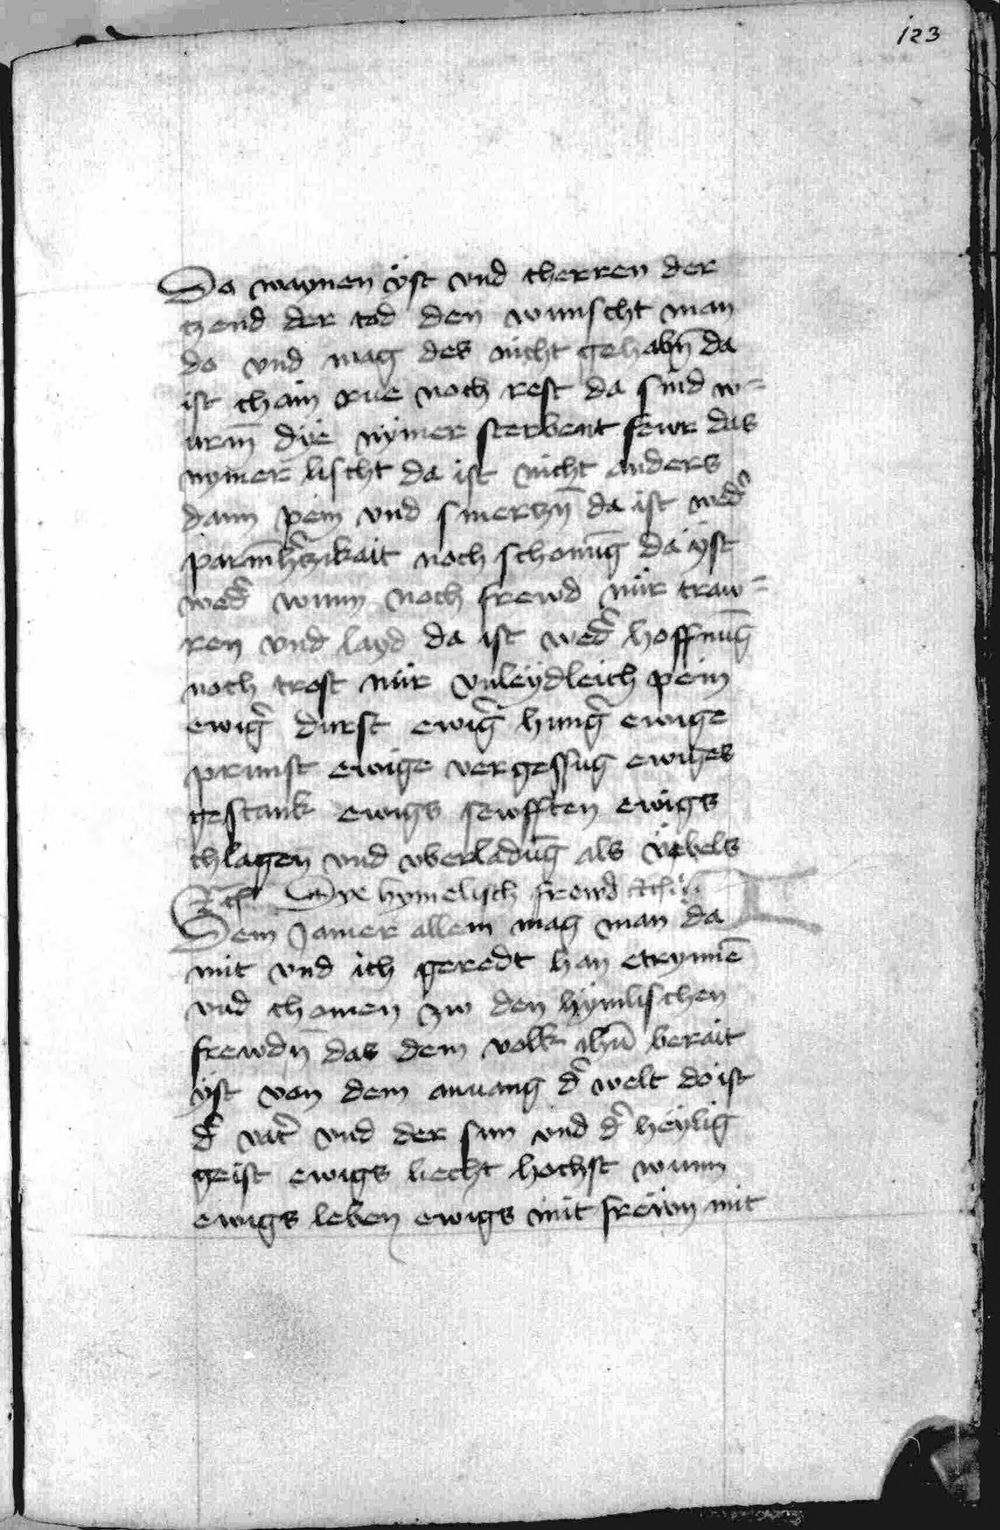 123
Da waynen ÿst vnd cherren der
tzend der tod den wunscht man
do vnd mag des nicht gehabn̄ da
ist chain rue noch rest da sind w=
urm̄ dÿe nÿmer sterbent fewr das
nymer lischt da ist nicht anders
dann pein vnd smertzn̄ da ist wed̄
parmh̄tzikait noch schonūg da ÿst
wed̄ wunn noch frewd nür traw=
ren vnd layd da ist wed̄ hoffnūg
noch trost nür vnleÿdleich pein
ewiḡ durst ewiḡ hunḡ ewige
prunst ewige vergessūg ewiges
gestank ewigs sewfften ewigs
chlagen vnd vberladūg als vebels
Dye hymelisch frewd
Dem Jamer allem mag man da
mit vnd ich geredt han etrynnē
vnd chomen zw den hÿmlischen
frewdn̄ das dem volk ihū berait
ÿst von dem anuang d̄ welt do ist
d̄ vat̄ vnd der sun vnd d̄ heÿlig
geist ewigs liecht hochst wunn
ewigs leben ewigs mit frewn mit